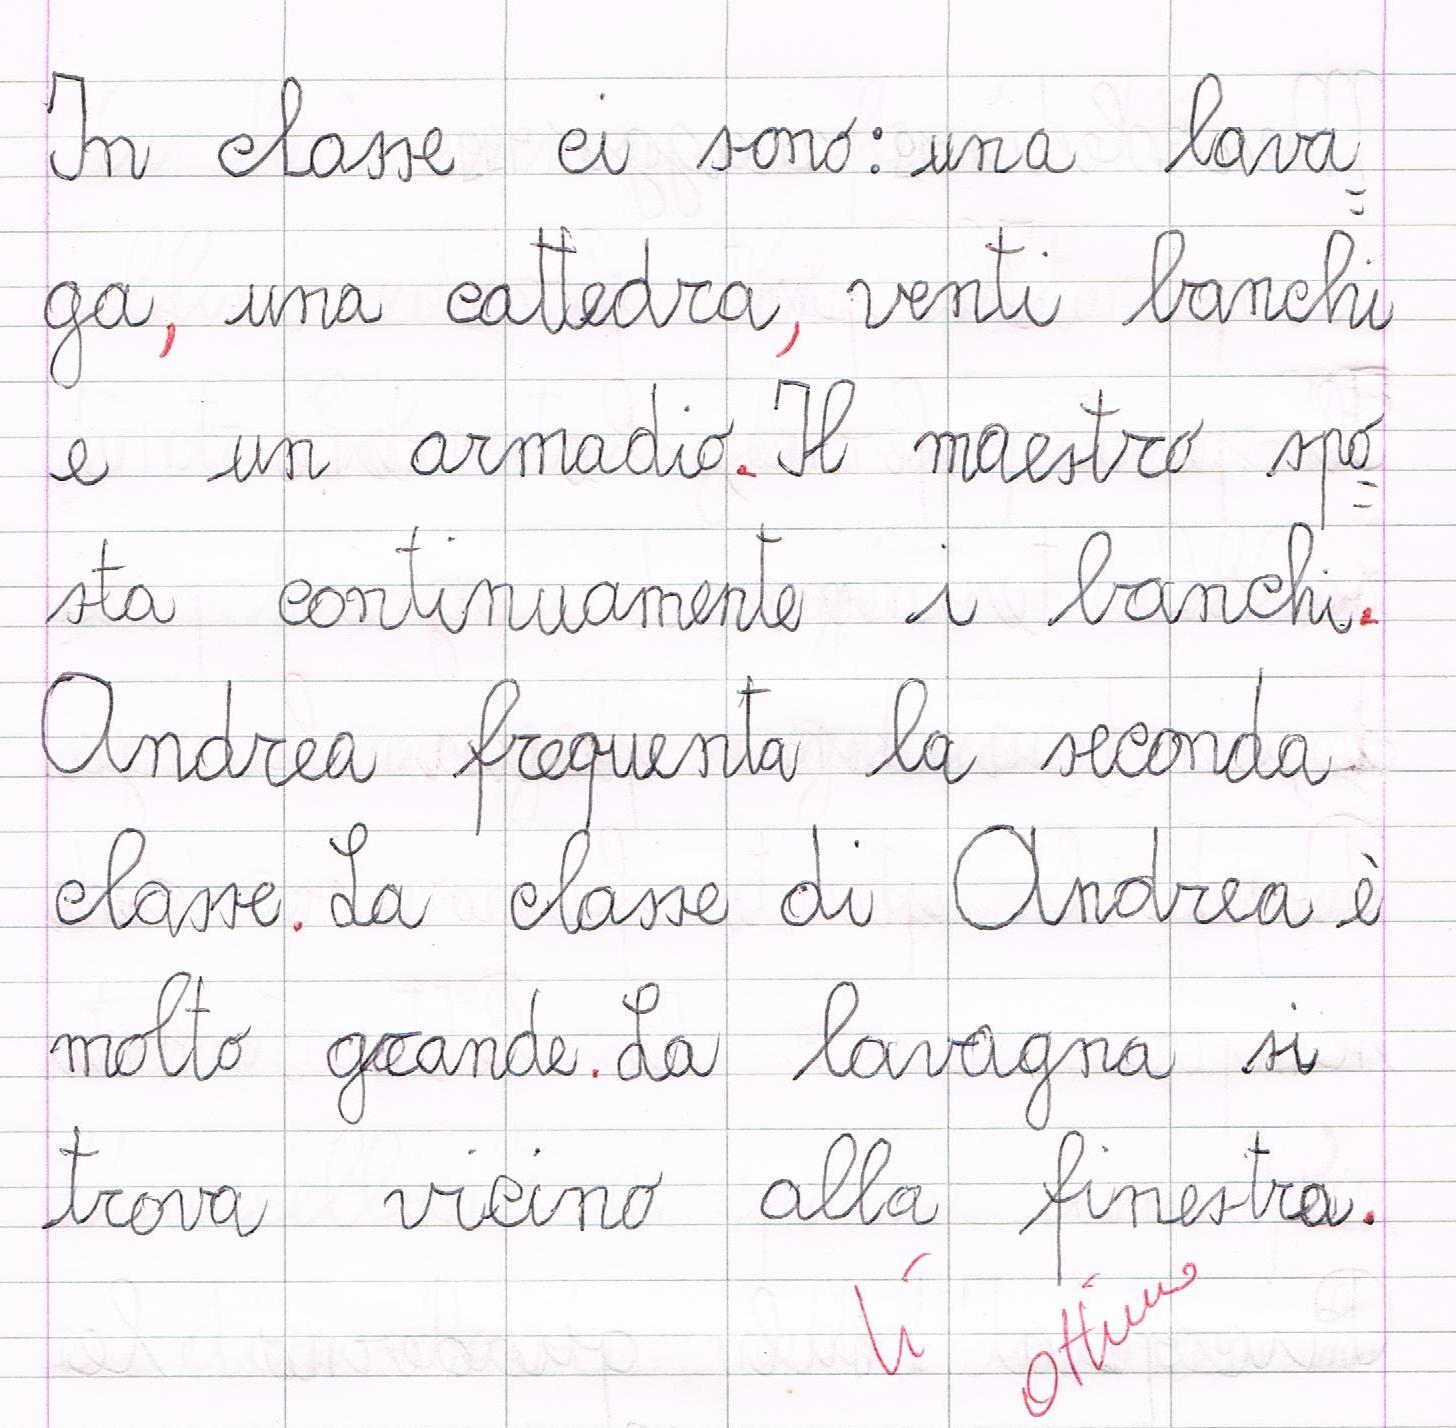 In classe ci sono: una lava=
ga, una cattedra, venti banchi
e un armadio. Il maestro spo=
sta continuamente i banchi.
Andrea frequenta la seconda
classe. La classe di Andrea è
molto grande. La lavagna si
trova vicino alla finestra.
Ottimo